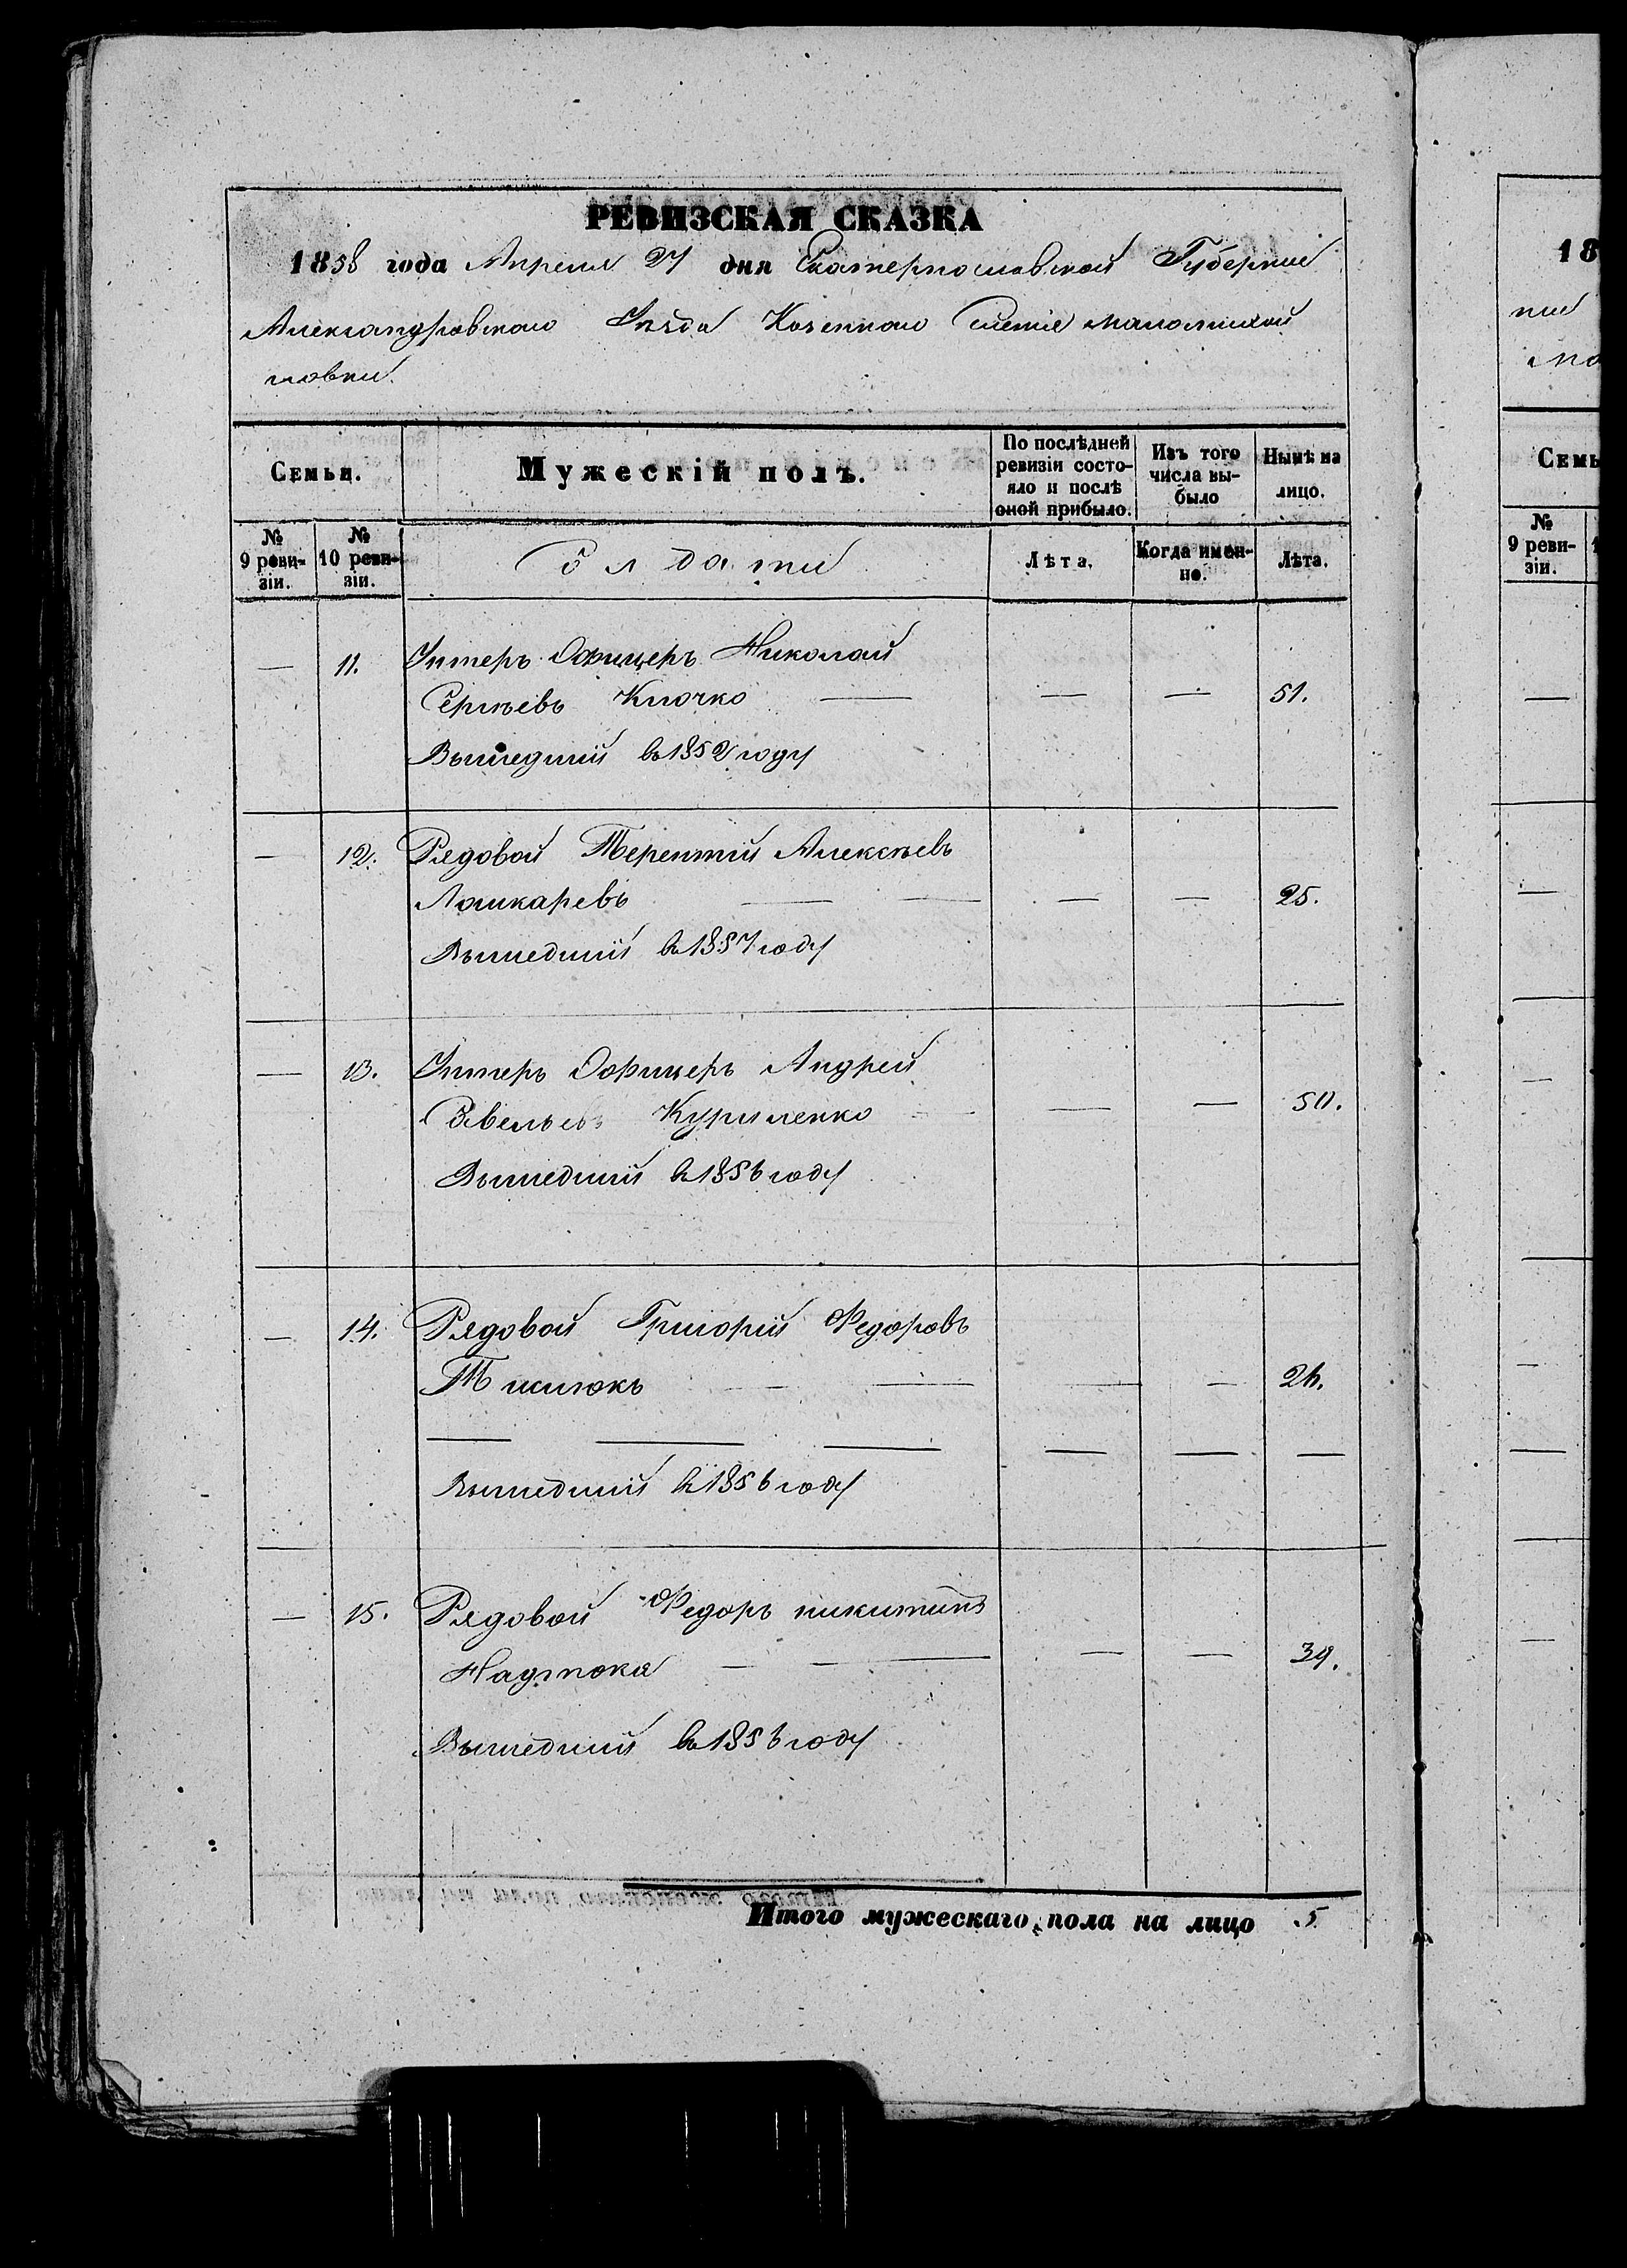 РЕВИЗСКАЯ СКАЗКА
1858 года Апреля 27 дня Екатеринославской Губерніи
Александровскаго Уѣзда Казеннаго Селенія
ловки.
Семьи.
Мужескій полъ.
По послѣдней ревизіи состояло и послѣ оной прибыло.
Изъ того числа выбыло
Нынѣ на лицо.
№ 9 ревизіи.
№ 10 ревизіи.
Солдаты
Лѣта.
Когда именно.
Лѣта.
— 11. Унтеръ Офицеръ Николай
Сергѣевъ Клочко — — — 51.
Вышедшій въ 1852 году
— 12. Рядовой Терентій Алексѣевъ
Лошкаревъ — — — — 25.
Вышедшій въ 1857 году
— 13. Унтеръ Офицеръ Андрей
Савельевъ Куриленко — — — 50.
Вышедшій въ 1856 году
— 14. Рядовой Григорій Федоровъ
— — — —
— — — — — —
Вышедшій въ 1856 году
— 15. Рядовой Федоръ никитинъ
Надтока — — — — 39.
Вышедшій въ 1856 году
Итого мужескаго пола на лицо 5
18
Семь
№ 9 ревизіи.